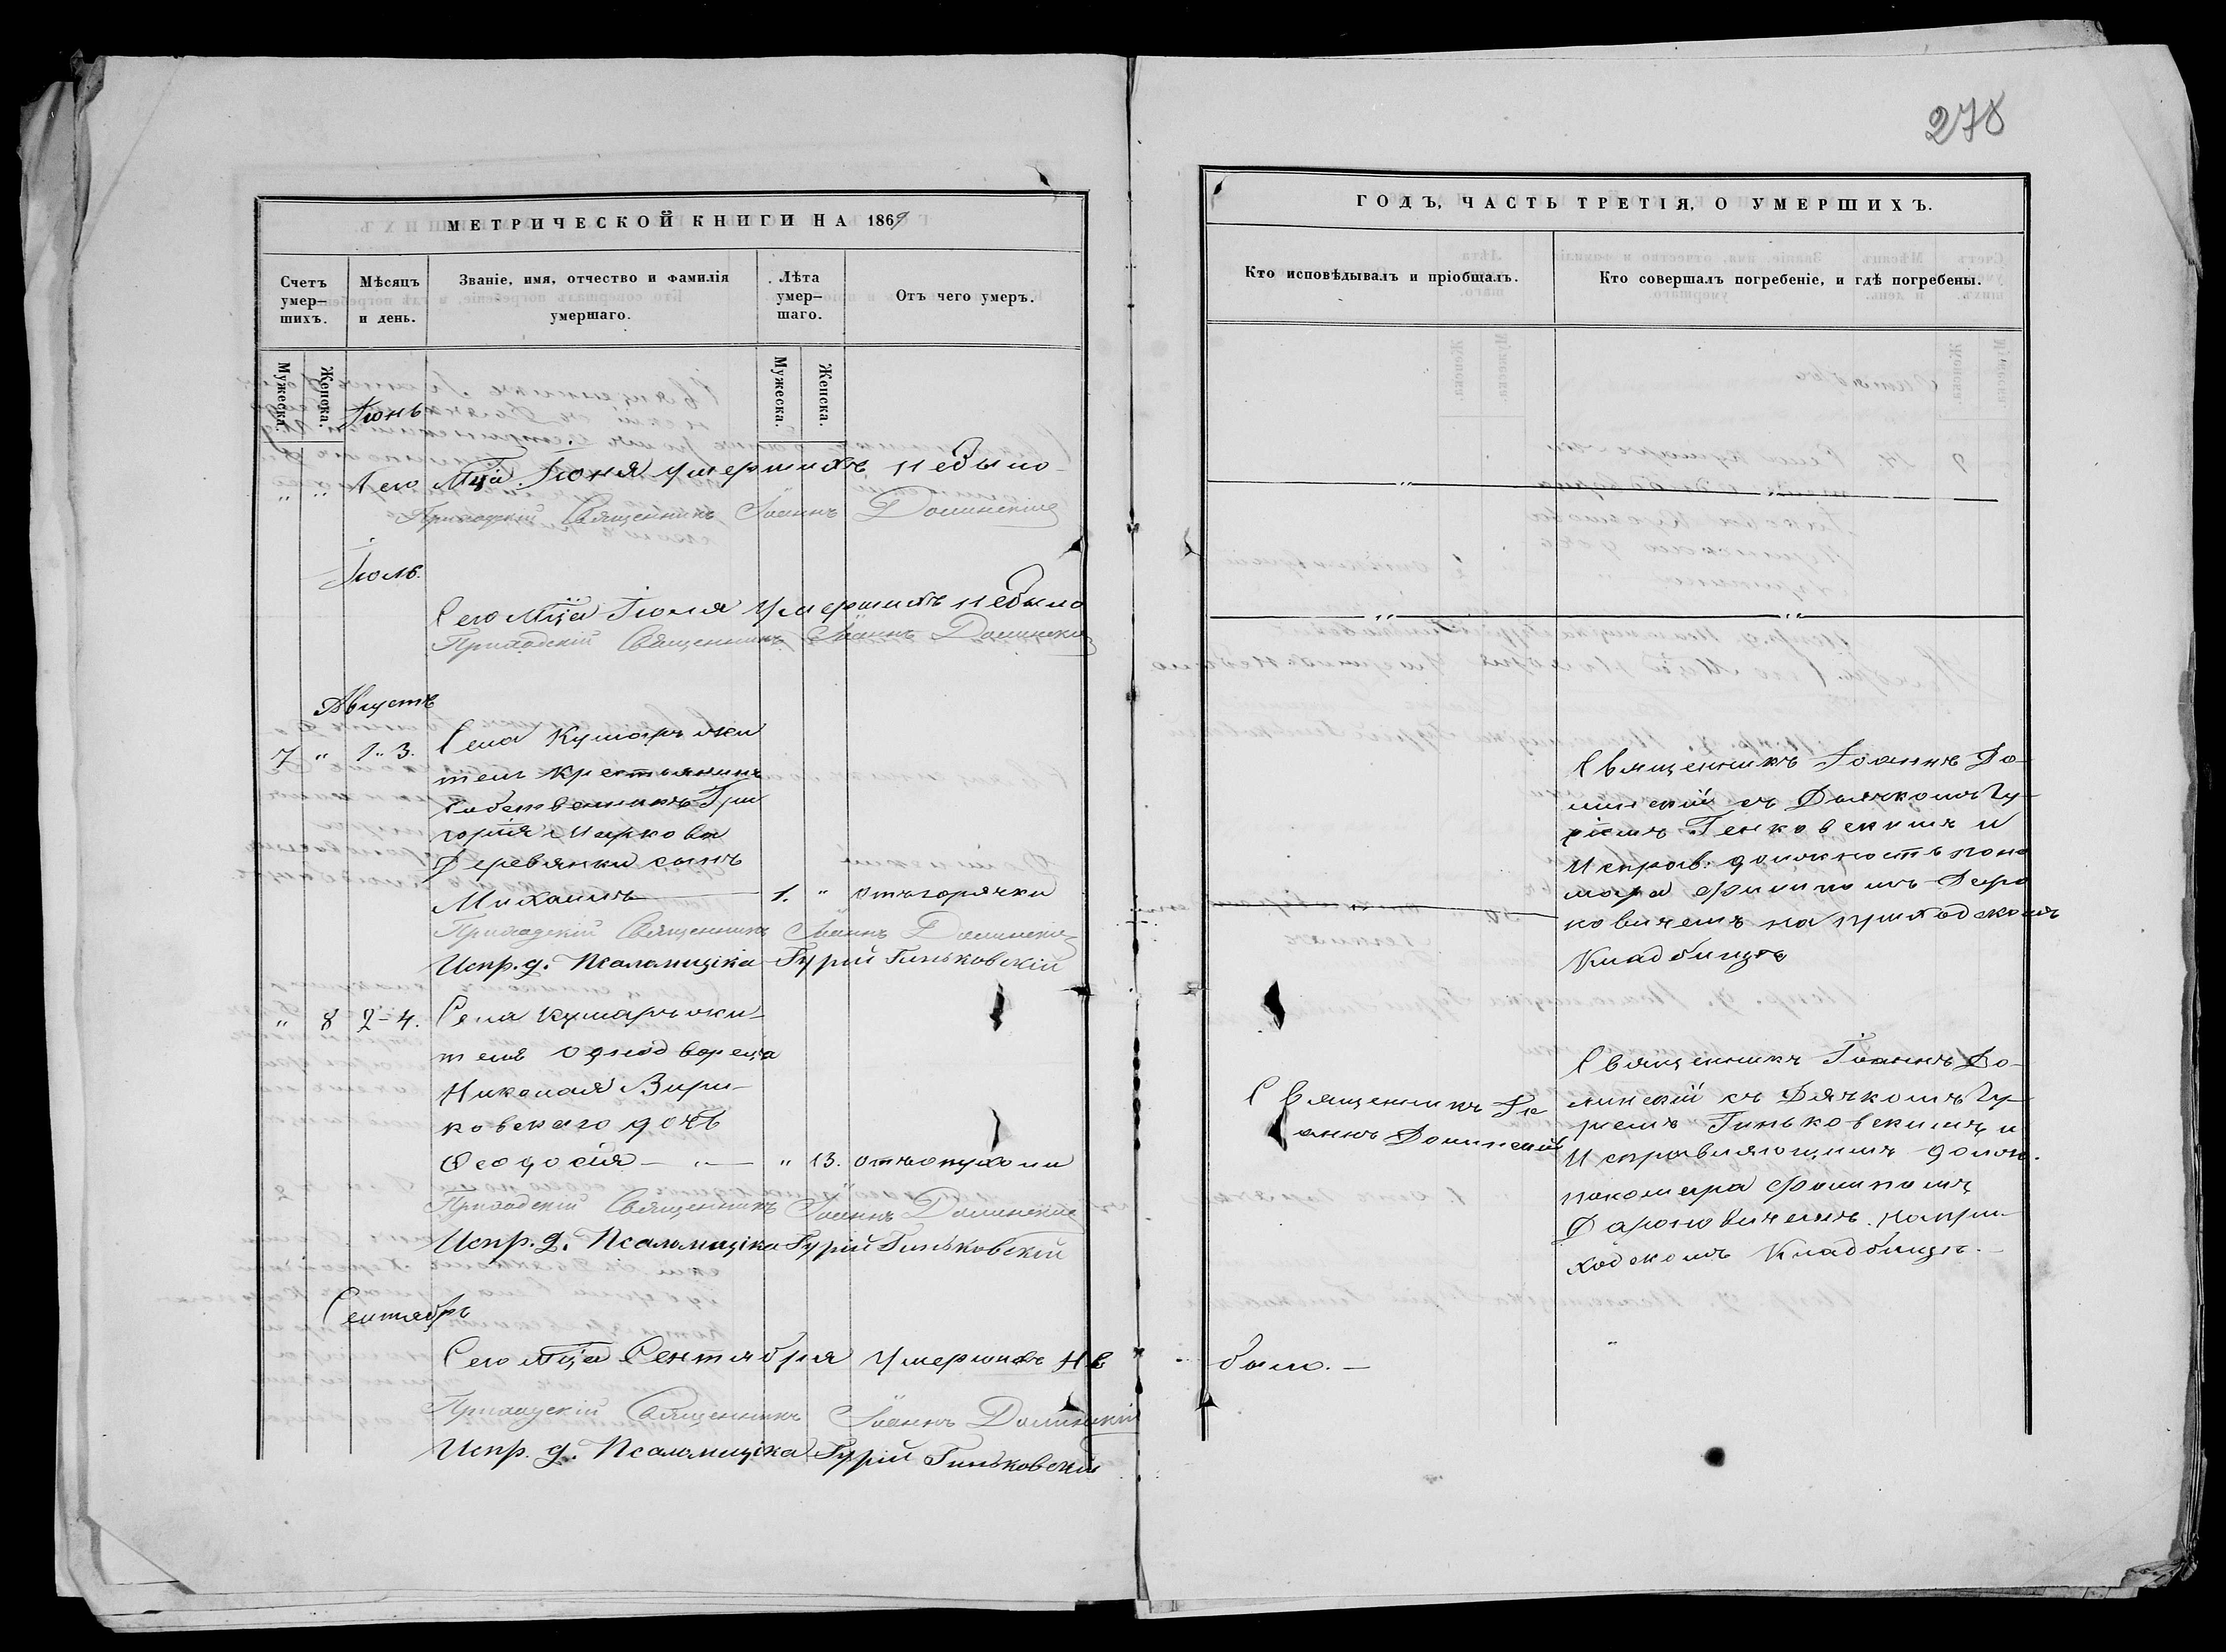 278
МЕТРИЧЕСКОЙ КНИГИ НА 1869
Счетъ умер-шихъ.
Мѣсяцъ и день.
Званіе, имя, отчество и фамилія умершаго.
Лѣта умер-шаго.
Отъ чего умеръ.
Мужеска.
Женска.
Мужеска.
Женска.
Іюнь
" " Сего Мца Іюня умершихъ небыло
Приходскій Священникъ Іоаннъ Долинскій
Іюль.
Сего Мца Іюля умершихъ небыло
Приходскій Священникъ Іоаннъ Долинскій
Августъ
7 " 1. 3. Села Кумаръ жи
тель крестьянинъ
собственникъ Гри
горія Маркова
Деревянки сынъ
Михаилъ 1. " отъ горячки
Приходскій Священникъ Іоаннъ Долинскій
Испр. д. Псаломщика Гурій Гиньковскій
" 8 2-4. Села Кумаръ жи-
теля однодворца
Николая Вири-
ковскаго дочь
Ѳеодосія " " 13. отъ опухоли
Приходскій Священникъ Іоаннъ Долинскій
Испр. д. Псаломщика Гурій Гиньковскій
Сентябрь
Сего Мца Сентября умершихъ не
Приходскій Священникъ Іоаннъ Долинскій
Испр. д. Псаломщика Гурій Гиньковскій
ГОДЪ, ЧАСТЬ ТРЕТІЯ, О УМЕРШИХЪ.
Кто исповѣдывалъ и пріобщалъ.
Кто совершалъ погребеніе, и гдѣ погребены.
" "
" "
Священникъ Іоаннъ До-
линскій съ Дьячкомъ Гу-
ріемъ Генковскимъ и
Исправ. должность поно
маря Филипомъ Дара
"
новичемъ на приходскомъ
Кладбищѣ
Священникъ Іоаннъ До-
Священникъ Іо
линскій съ Дячкомъ Гу-
аннъ Долинскій
ріемъ Гиньковскимъ и
Исправляющимъ долж.
понамаря Филипомъ
Дарановичемъ на при-
ходскомъ Кладбищѣ.
было.